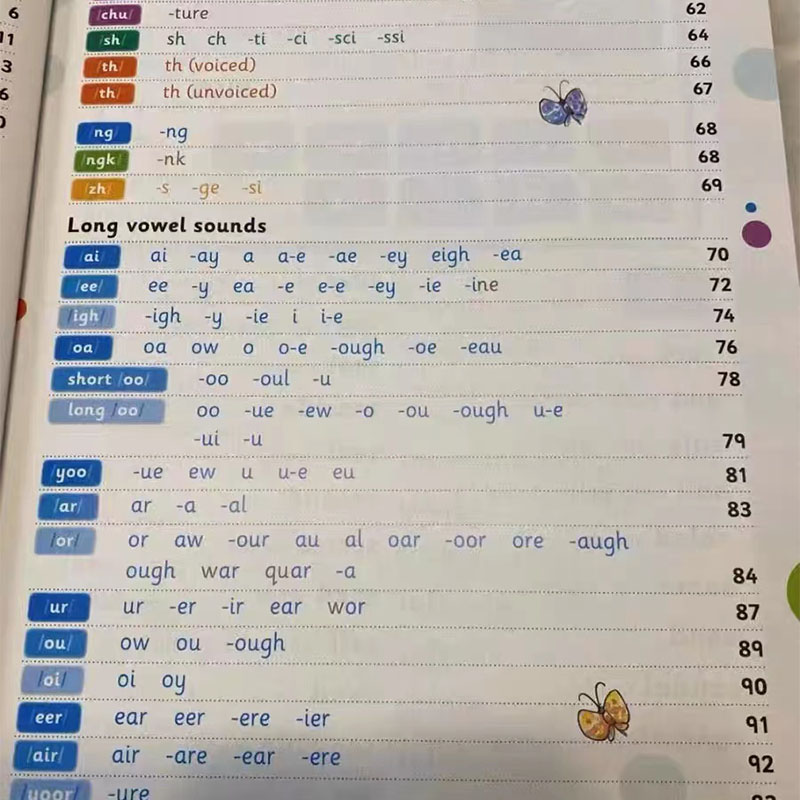 6
/chu/ -ture 62
11
/sh/ sh ch -ti -ci -sci -ssi 64
3
/th/ th (voiced) 66
6
/th/ th (unvoiced) 67
/ng/ -ng 68
/ngk/ -nk 68
/zh/ -s -ge -si 69
Long vowel sounds
/ai/ ai -ay a a-e -ae -ey eigh -ea 70
/ee/ ee -y ea -e e-e -ey -ie -ine 72
/igh/ -igh -y -ie i i-e 74
/oa/ oa ow o o-e -ough -oe -eau 76
short /oo/ -oo -oul -u 78
long /oo/ oo -ue -ew -o -ou -ough u-e
-ui -u 79
/yoo/ -ue ew u u-e eu 81
/ar/ ar -a -al 83
/or/ or aw -our au al oar -oor ore -augh
ough war quar -a 84
/ur/ ur -er -ir ear wor 87
/ou/ ow ou -ough 89
/oi/ oi oy 90
/eer/ ear eer -ere -ier 91
/air/ air -are -ear -ere 92
/yoor/ -ure